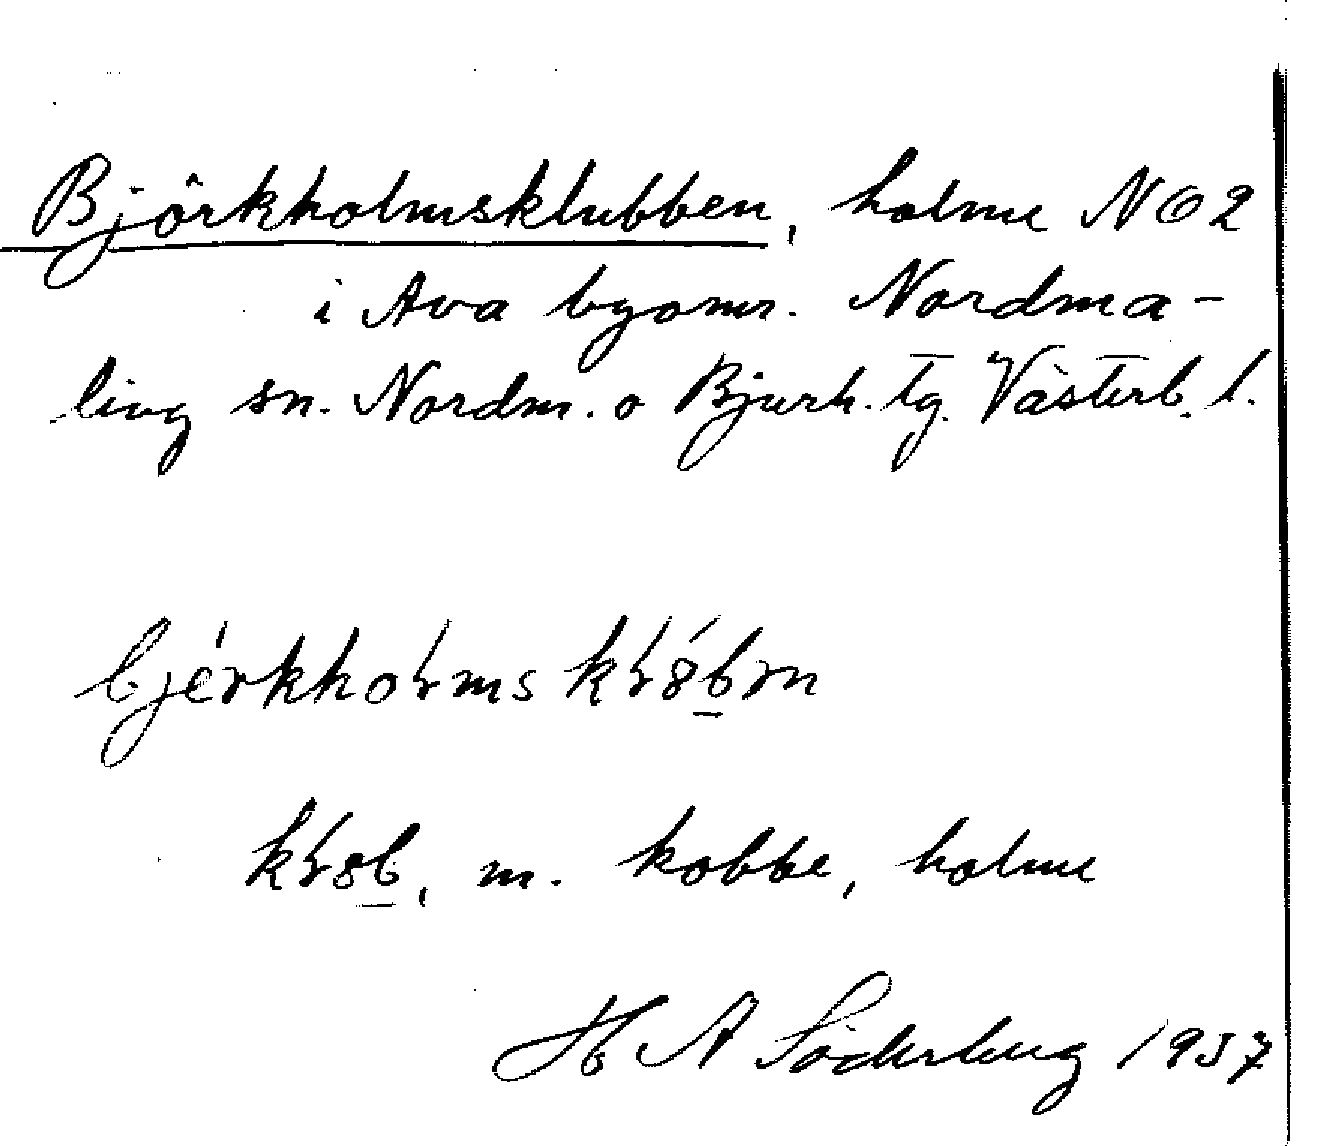 Björkholmsklubben, holme NO2
i Ava byomr. Nordma-
ling sn. Nordm. o Bjurh. tg. Västerb. l.
kobbe, holme
H A Söderberg 1937